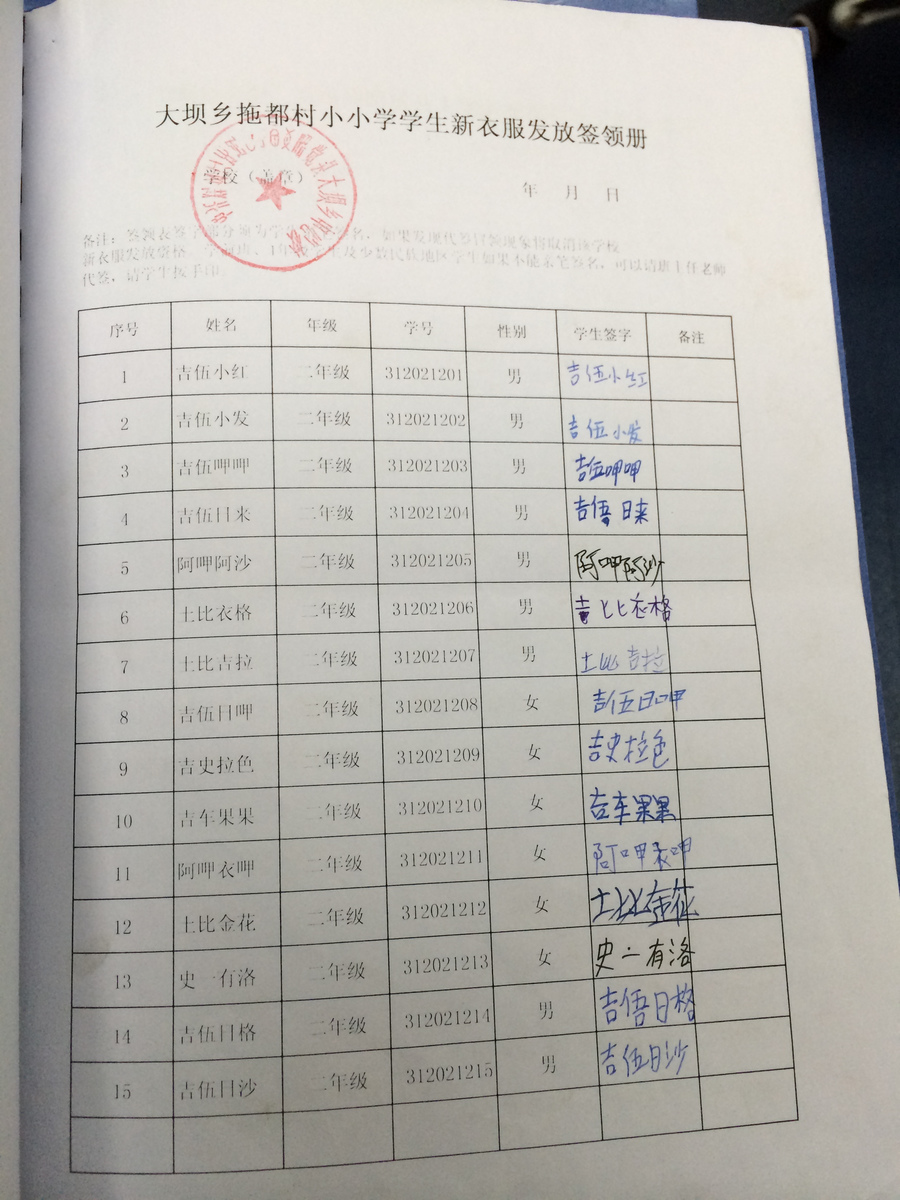 大坝乡拖都村小小学学生新衣服发放签领册
学校（盖章）
年 月 日
备注：签领表签字部分须为学生亲笔签名，如果发现代签冒领现象将取消该学校
新衣服发放资格。学前班、1年级学生及少数民族地区学生如果不能亲笔签名，可以请班主任老师
代签，请学生按手印
序号 姓名 年级 学号 性别 学生签字 备注
1 吉伍小红 二年级 312021201 男 吉伍小红
2 吉伍小发 二年级 312021202 男 吉伍小发
3 吉伍呷呷 二年级 312021203 男 吉伍呷呷
4 吉伍日来 二年级 312021204 男 吉悟日来
5 阿呷阿沙 二年级 312021205 男 阿呷阿沙
6 土比衣格 二年级 312021206 男 比衣格
7 土比吉拉 二年级 312021207 男 土比吉拉
8 吉伍日呷 二年级 312021208 女 吉伍日呷
9 吉史拉色 二年级 312021209 女 吉史拉色
10 吉车果果 二年级 312021210 女 吉车果果
11 阿呷衣呷 二年级 312021211 女 阿呷衣呷
12 土比金花 二年级 312021212 女 土比金花
13 史一有洛 二年级 312021213 女 史一有洛
14 吉伍日格 二年级 312021214 男 吉悟日格
15 吉伍日沙 二年级 312021215 男 吉伍日沙